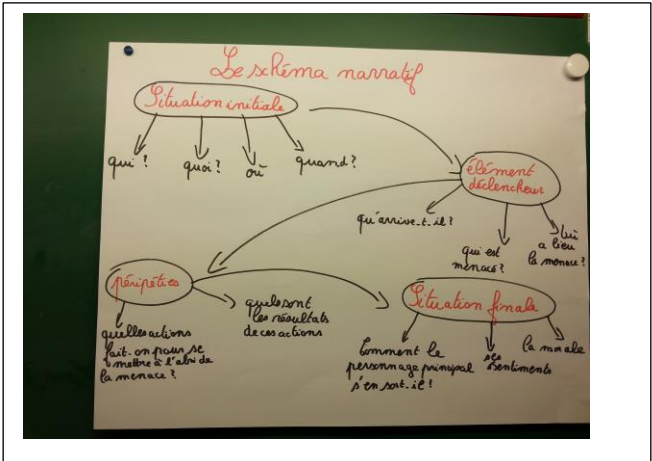 Le schéma narratif
Situation initiale
qui ?
quoi ?
où
quand ?
élément
déclencheur
qu'arrive-t-il ?
qui est
menacé ?
où
a lieu
la menace ?
péripéties
quelles actions
fait-on pour se
mettre à l'abri de
la menace ?
quels sont
les résultats
de ces actions
Situation finale
Comment le
personnage principal
s'en sort-il ?
ses
sentiments
la morale